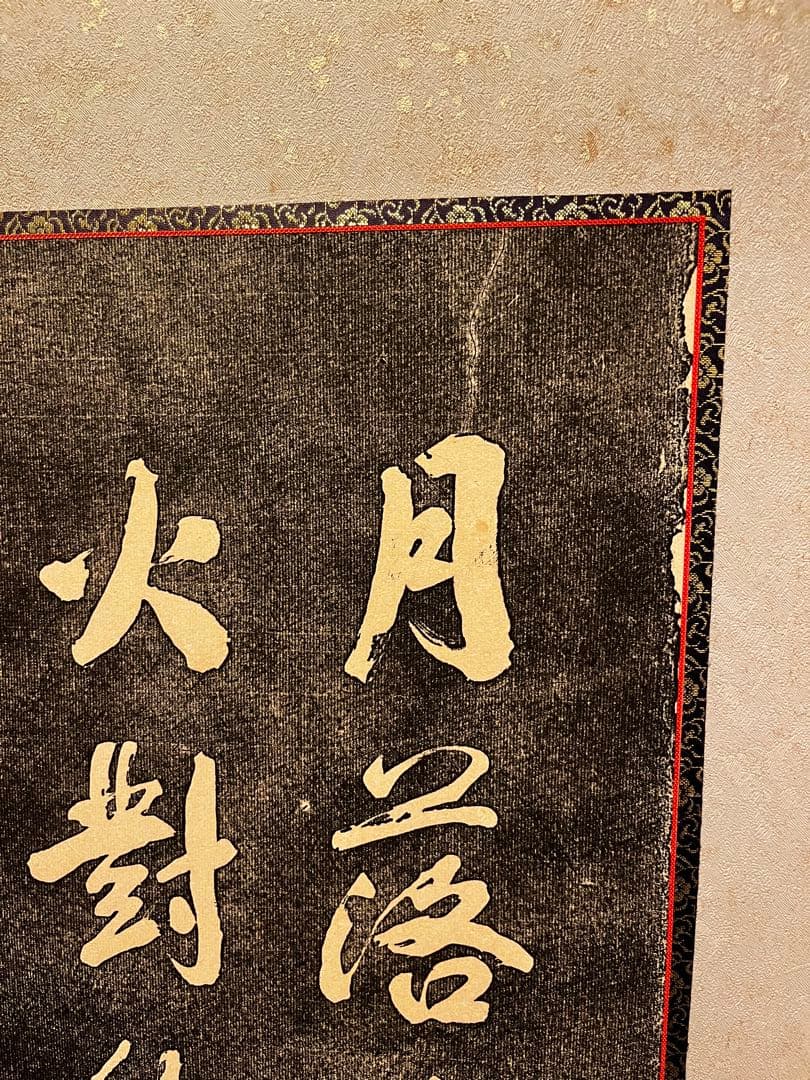 月落
火對